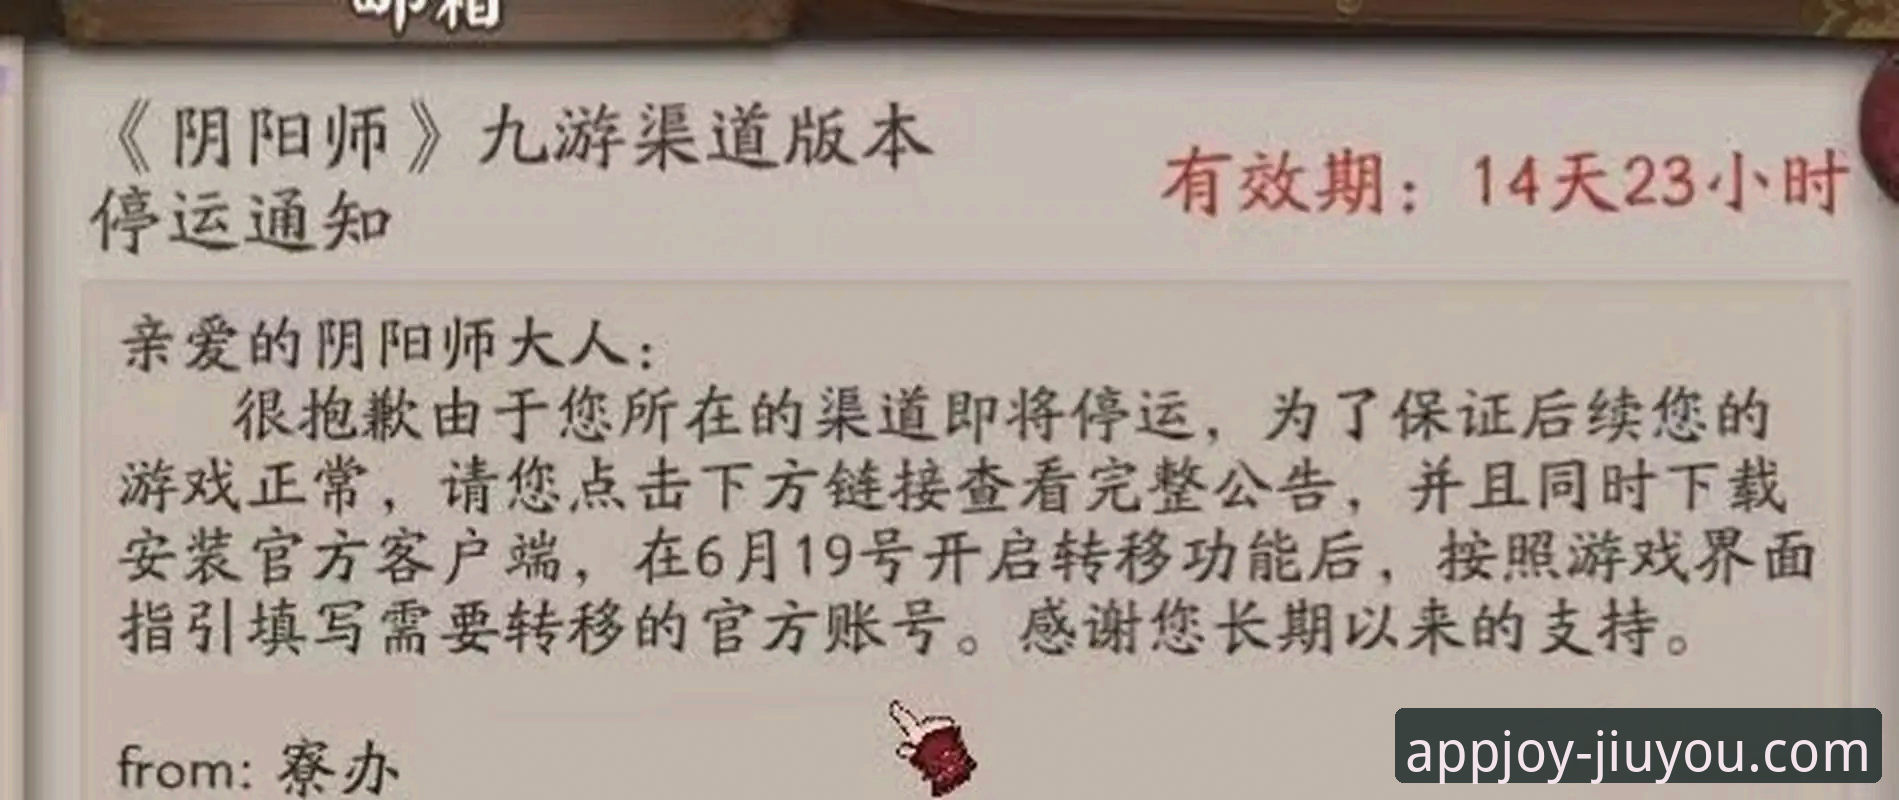 邮箱
《阴阳师》九游渠道版本
停运通知
有效期：14天23小时
亲爱的阴阳师大人：
很抱歉由于您所在的渠道即将停运，为了保证后续您的
游戏正常，请您点击下方链接查看完整公告，并且同时下载
安装官方客户端，在6月19号开启转移功能后，按照游戏界面
指引填写需要转移的官方账号。感谢您长期以来的支持。
from: 寮办
appjoy-jiuyou.com